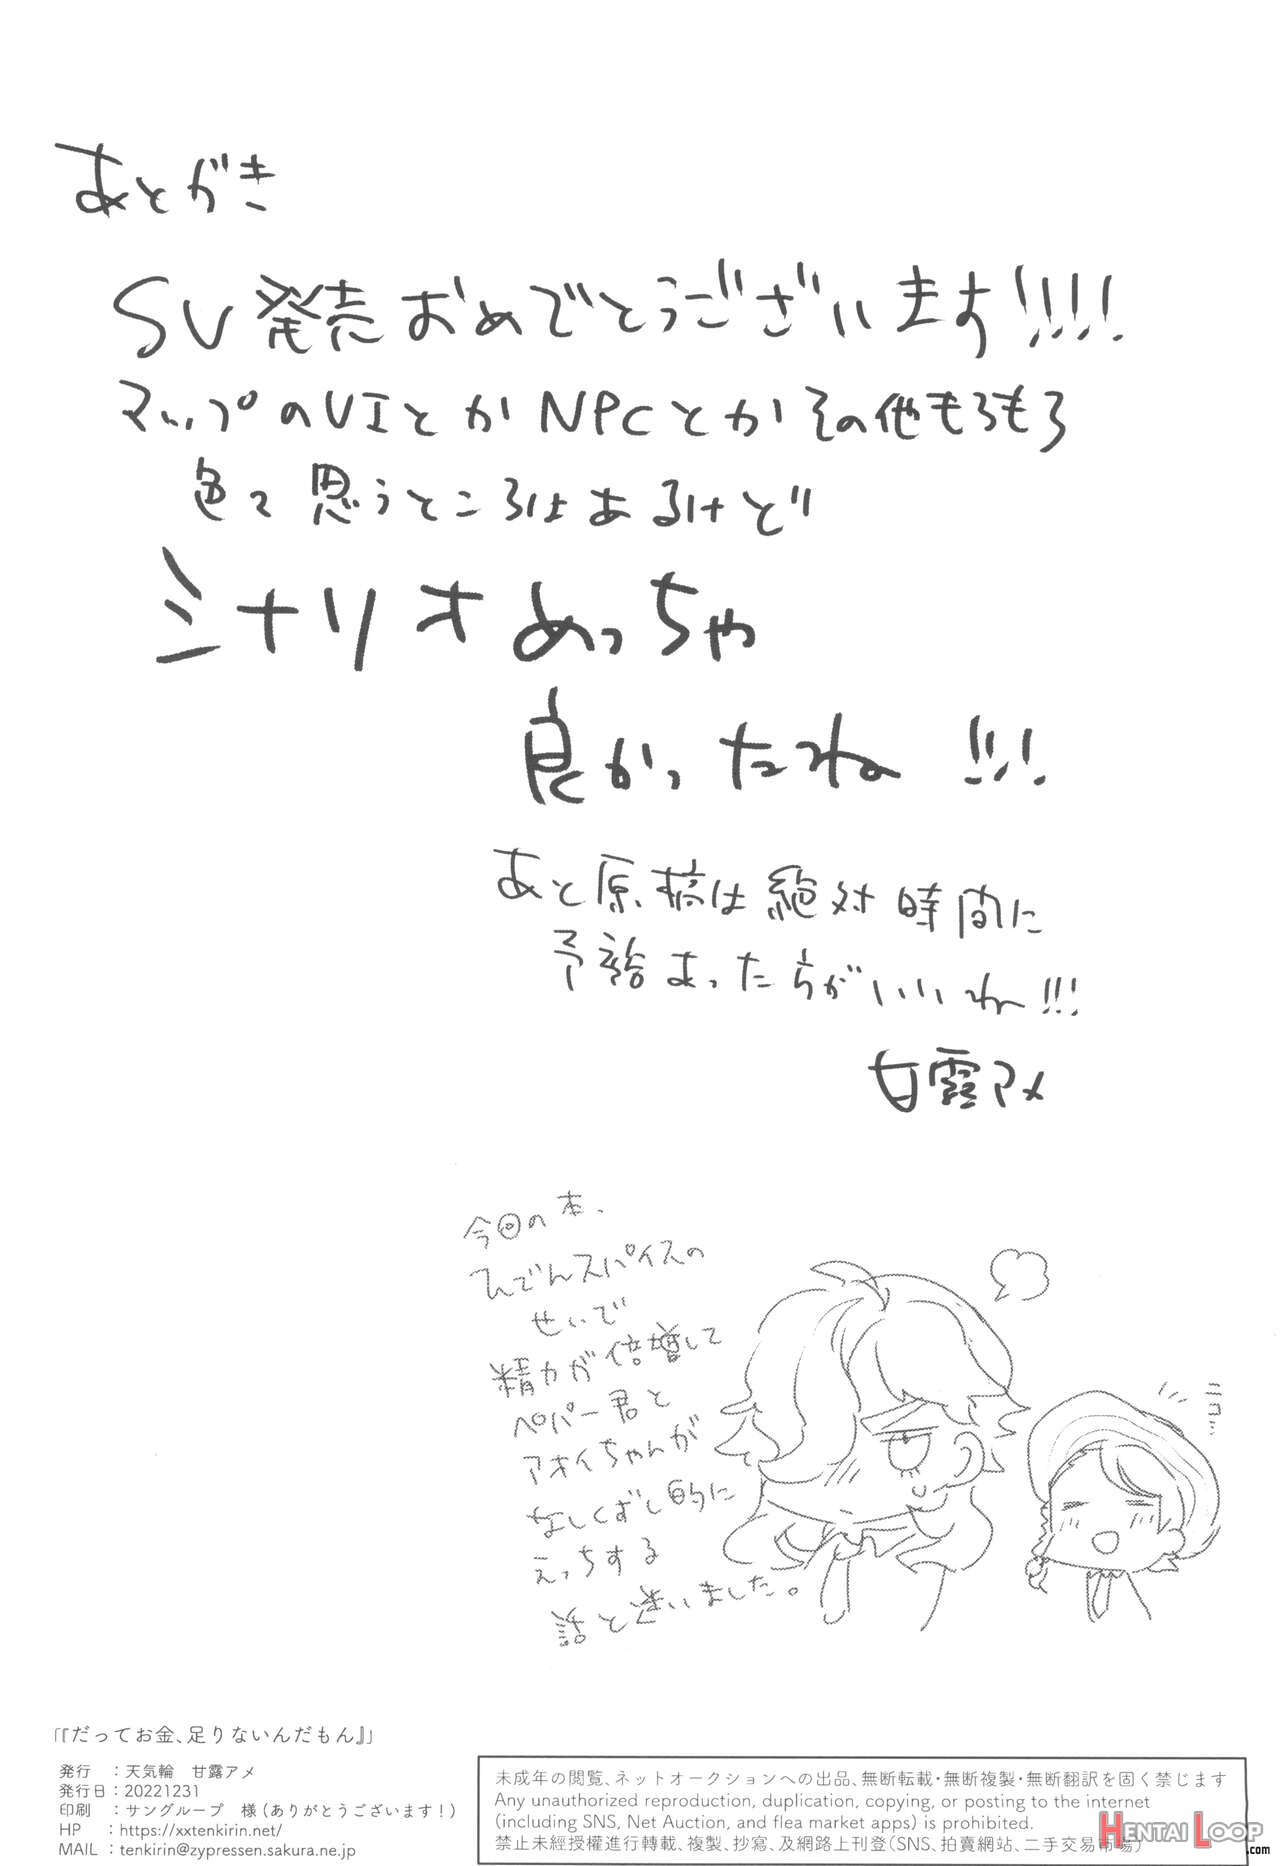 あとがき
SV発売おめでとうございます!!!!
マップのUIとかNPCとかその他もろもろ
色々思うところはあるけど
シナリオめっちゃ
良かったね!!!
あと原稿は絶対時間に
予裕あった方がいいね!!!
甘露アメ
今回の本、
ひでんスパイスの
せいで
精力が倍増して
ペパー君と
アオイちゃんが
なしくずし的に
えっちする
話と迷いました。
ニコッ
「『だってお金、足りないんだもん』」
発行 : 天気輪 甘露アメ
発行日 : 20221231
印刷 : サングループ 様(ありがとうございます!)
HP : https://xxtenkirin.net/
MAIL : tenkirin@zypressen.sakura.ne.jp
未成年の閲覧、ネットオークションへの出品、無断転載・無断複製・無断翻訳を固く禁じます
Any unauthorized reproduction, duplication, copying, or posting to the internet
(including SNS, Net Auction, and flea market apps) is prohibited.
禁止未經授權進行轉載、複製、抄寫、及網路上刊登(SNS、拍賣網站、二手交易市場)
HENTAI LOOP
.com